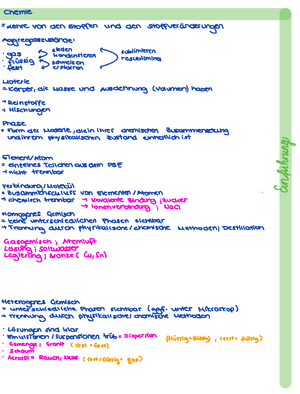 Chemie
= Lehre von den Stoffen und den Stoffveränderungen
Aggregatzustände:
· gas
· flüssig
· fest
sieden
kondensieren
schmelzen
erstarren
sublimieren
resublimieren
Materie
= Körper, die Masse und Ausdehnung (Volumen) haben
→ Reinstoffe
→ Mischungen
Phase
= Form der Materie, die in ihrer chemischen Zusammensetzung
und ihrem physikalischen Zustand einheitlich ist
Element/Atom
= einzelnes Teilchen aus dem PSE
→ nicht trennbar
Verbindung/Molekül
= Zusammenschluss von Elementen/Atomen
→ chemisch trennbar → kovalente Bindung; Zucker
→ Ionenverbindung; NaCl
Homogenes Gemisch
= keine unterschiedlichen Phasen sichtbar
→ Trennung durch physikalische/chemische Methoden; Destillation
Gasgemisch; Atemluft
Lösung; Salzwasser
Legierung; Bronze (Cu, Sn)
Heterogenes Gemisch
= unterschiedliche Phasen sichtbar (ggf. unter Mikroskop)
→ Trennung durch physikalische/chemische Methoden
· Lösungen sind klar
· Emulsionen/Suspensionen trüb = Dispersion (flüssig+flüssig), (fest+flüssig)
· Gemenge; Granit (fest+fest)
· Schaum
· Aerosol = Rauch, Nebel (fest/flüssig+gas)
Einführung